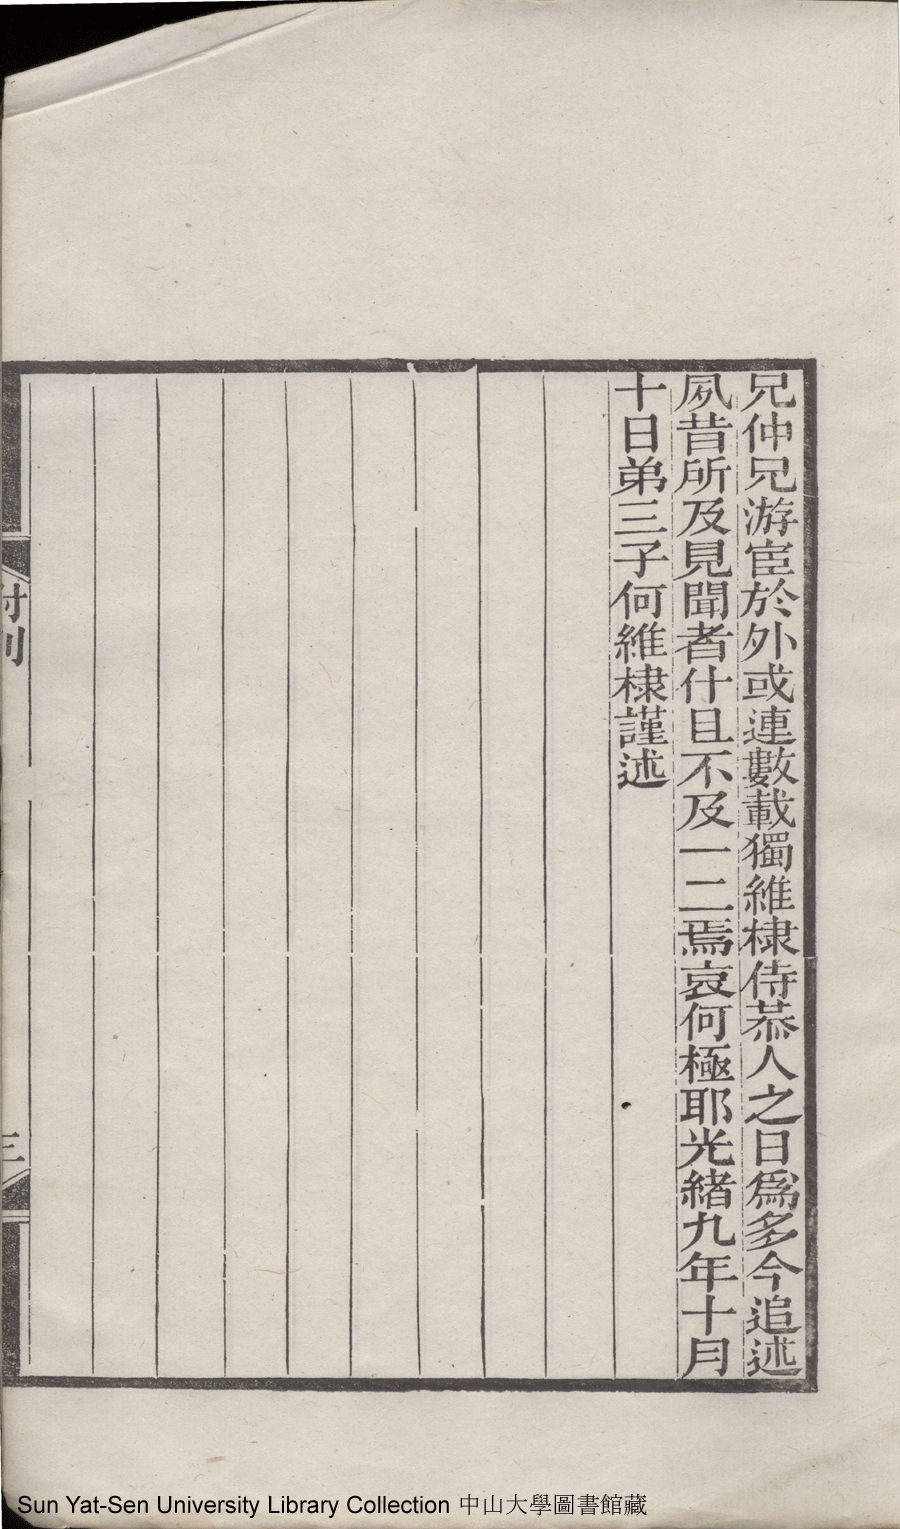 兄仲兄游宦於外或連數載獨維棣侍恭人之日爲多今追述
夙昔所及見聞者什且不及一二焉哀何極耶光緒九年十月
十日弟三子何維棣謹述
附刊
三
Sun Yat-Sen University Library Collection 中山大學圖書館藏